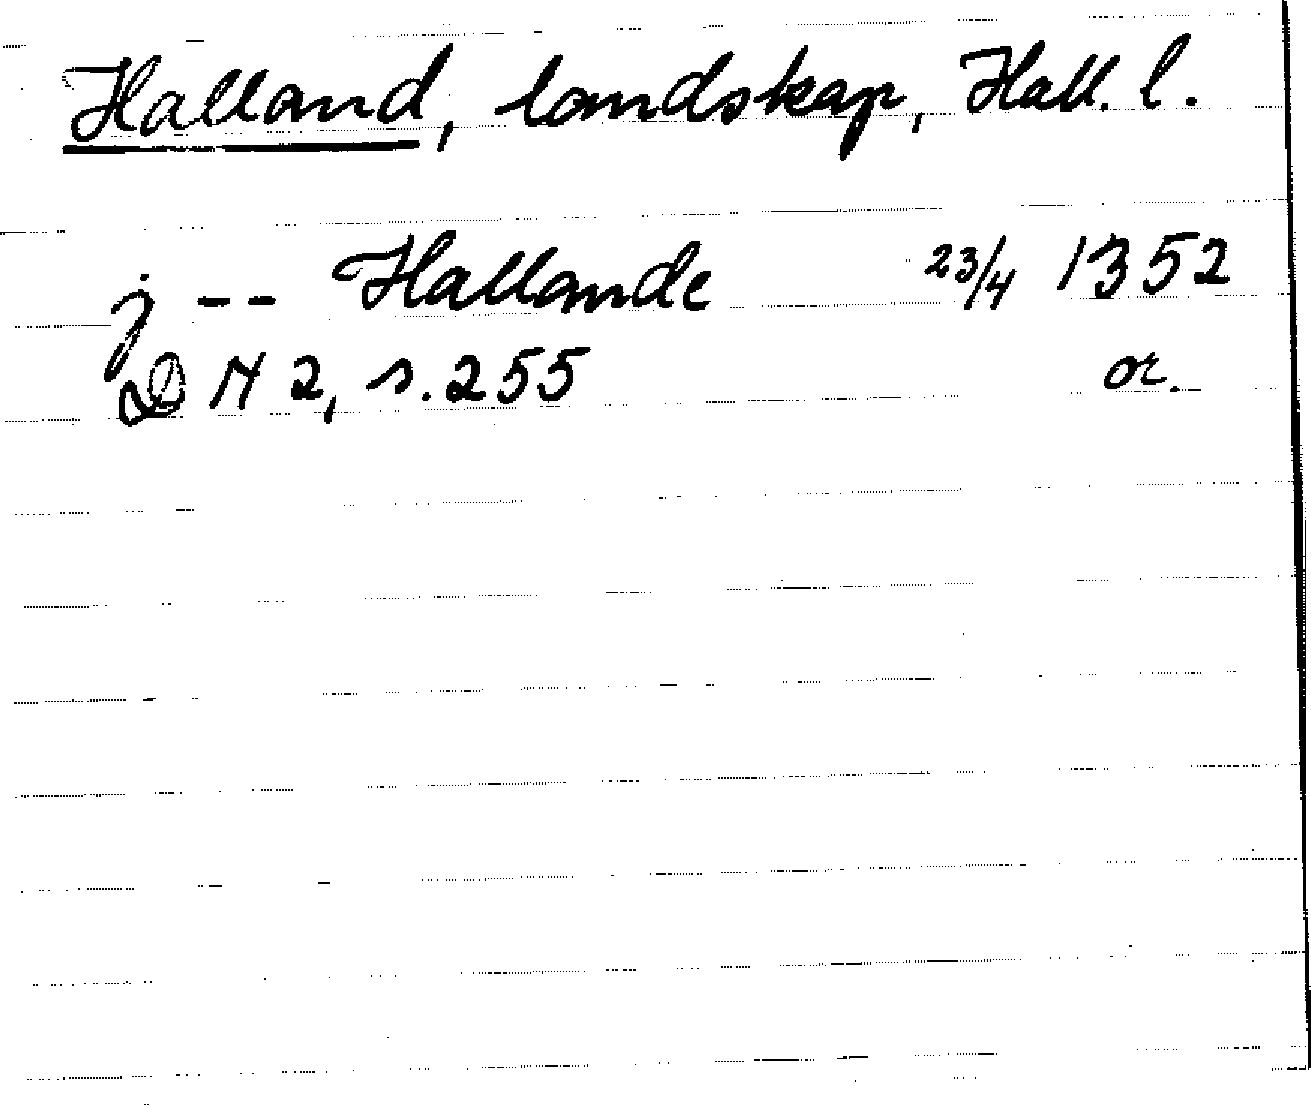 Halland, landskap, Hall. l.
j -- Hallande 23/4 1352
DN 2, s. 255 or.